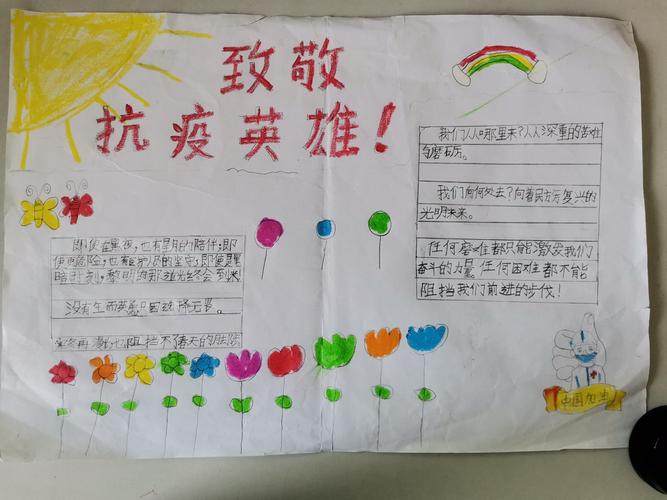 致敬
抗疫英雄！
即使在黑夜,也有星月的陪伴;即
使
险,也有
的坚守;即使是黑
暗时刻,黎明的那道光终会到来!
没有生而英勇只因选择无畏。
冬再漫
也阻挡不了春天的脚步
我们从哪里来?从深重的苦难
与磨砺。
我们向何处去?向着民族复兴的
光明未来。
任何磨难都只能激发我们
奋斗的力量,任何困难都不能
阻挡我们前进的步伐!
中国加油